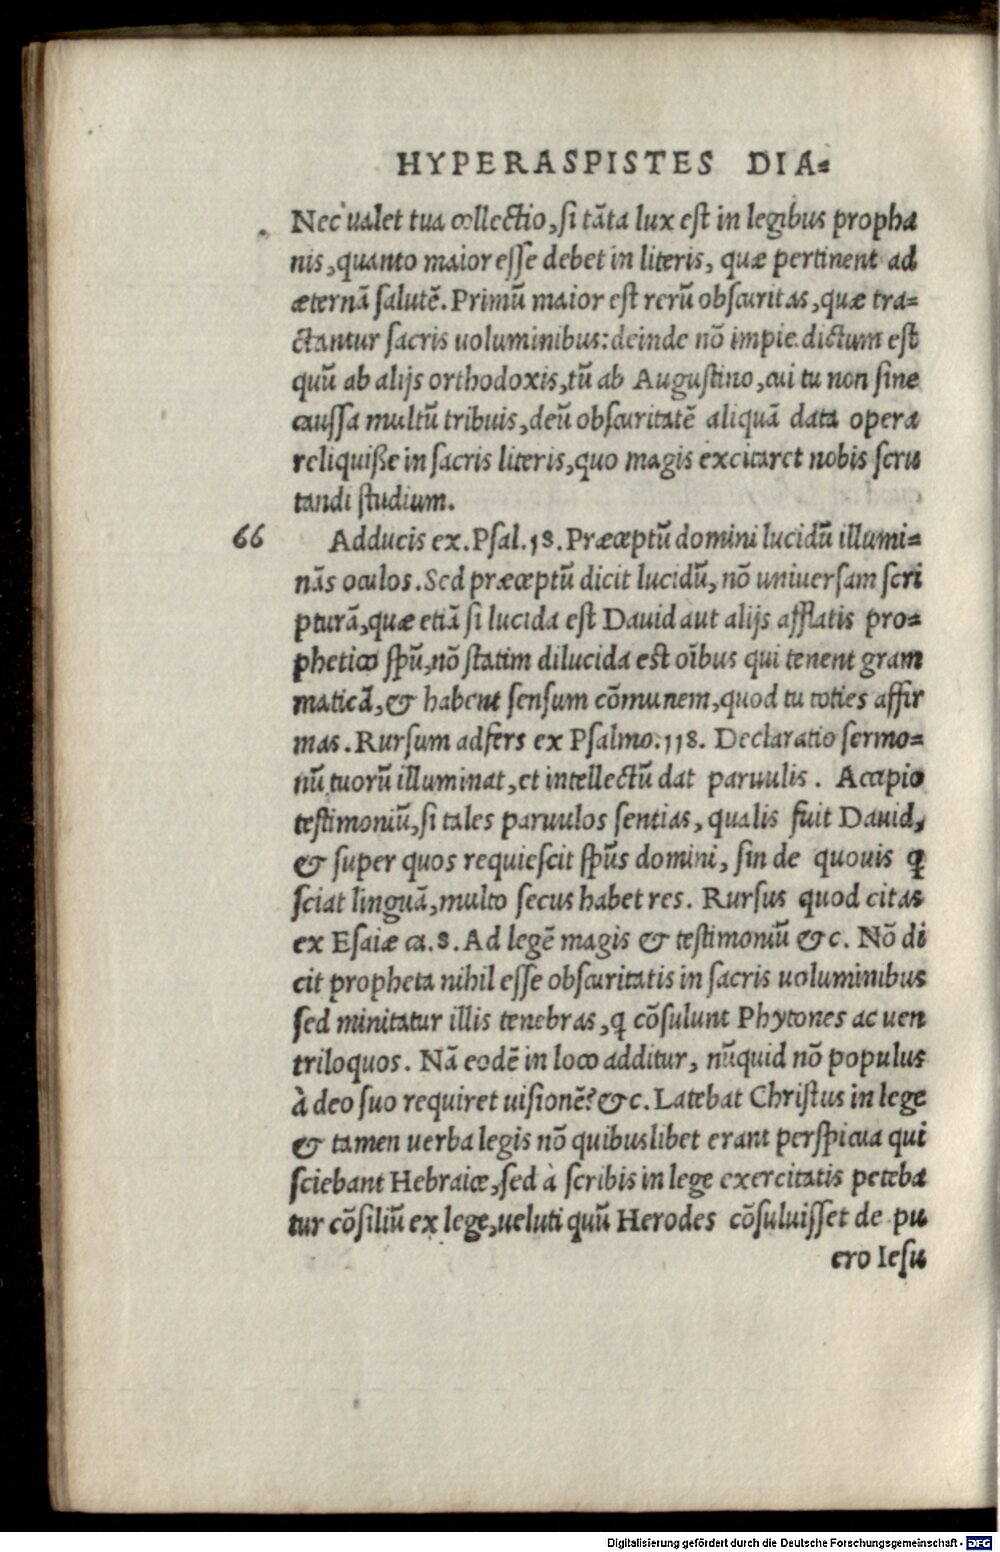 HYPERASPISTES DIA⸗
Nec ualet tua collectio, si tãta lux est in legibus propha
nis, quanto maior esse debet in literis, quæ pertinent ad
æternã salutẽ. Primũ maior est rerũ obscuritas, quæ tra⸗
ctantur sacris uoluminibus: deinde nõ impie dictum est
quũ ab alijs orthodoxis, tũ ab Augustino, cui tu non sine
caussa multũ tribuis, deũ obscuritatẽ aliquã data opera
reliquiße in sacris literis, quo magis excitaret nobis scru
tandi studium.
66 Adducis ex. Psal. 18. Præceptũ domini lucidũ illumi⸗
nãs oculos. Sed præceptũ dicit lucidũ, nõ uniuersam scri
pturã, quæ etiã si lucida est Dauid aut alijs afflatis pro⸗
phetico spũ, nõ statim dilucida est oĩbus qui tenent gram
maticã, & habent sensum cõmunem, quod tu toties affir
mas. Rursum adfers ex Psalmo. 118. Declaratio sermo⸗
nũ tuorũ illuminat, et intellectũ dat paruulis. Accipio
testimoniũ, si tales paruulos sentias, qualis fuit Dauid,
& super quos requiescit spũs domini, sin de quouis q̃
sciat linguã, multo secus habet res. Rursus quod citas
ex Esaiæ ca. 8. Ad legẽ magis & testimoniũ &c. Nõ di
cit propheta nihil esse obscuritatis in sacris uoluminibus
sed minitatur illis tenebras, q̃ cõsulunt Phytones ac uen
triloquos. Nã eodẽ in loco additur, nũquid nõ populus
à deo suo requiret uisionẽ? &c. Latebat Christus in lege
& tamen uerba legis nõ quibuslibet erant perspicua qui
sciebant Hebraice, sed à scribis in lege exercitatis peteba
tur cõsiliũ ex lege, ueluti quũ Herodes cõsuluisset de pu
ero Iesu
Digitalisierung gefördert durch die Deutsche Forschungsgemeinschaft - DFG